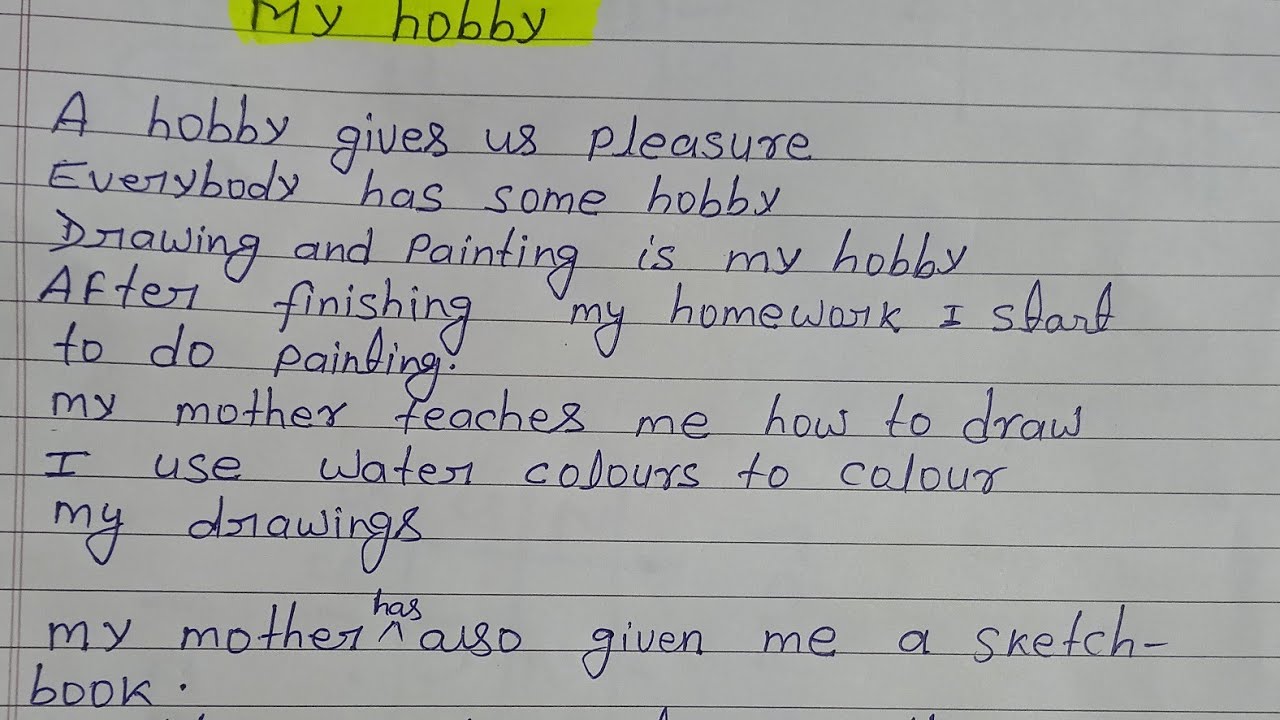 My hobby
A hobby gives us pleasure
Everybody has some hobby
Drawing and painting is my hobby
After finishing my homework I start
to do painting.
my mother teaches me how to draw
I use water colours to calour
my drawings
my mother has also given me a sketch-
book.